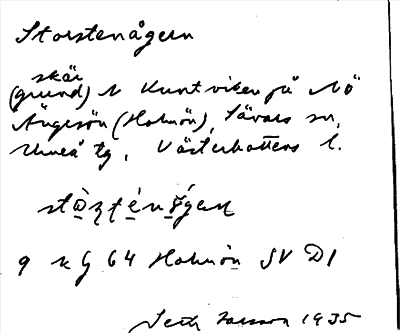 Storstenågern
skär
(grund) N Kuntviken på NÖ
Ängesön (Holmön), Sävars sn,
Umeå tg, Västerbottens l.
9 k G 64 Holmön SV D1
1935